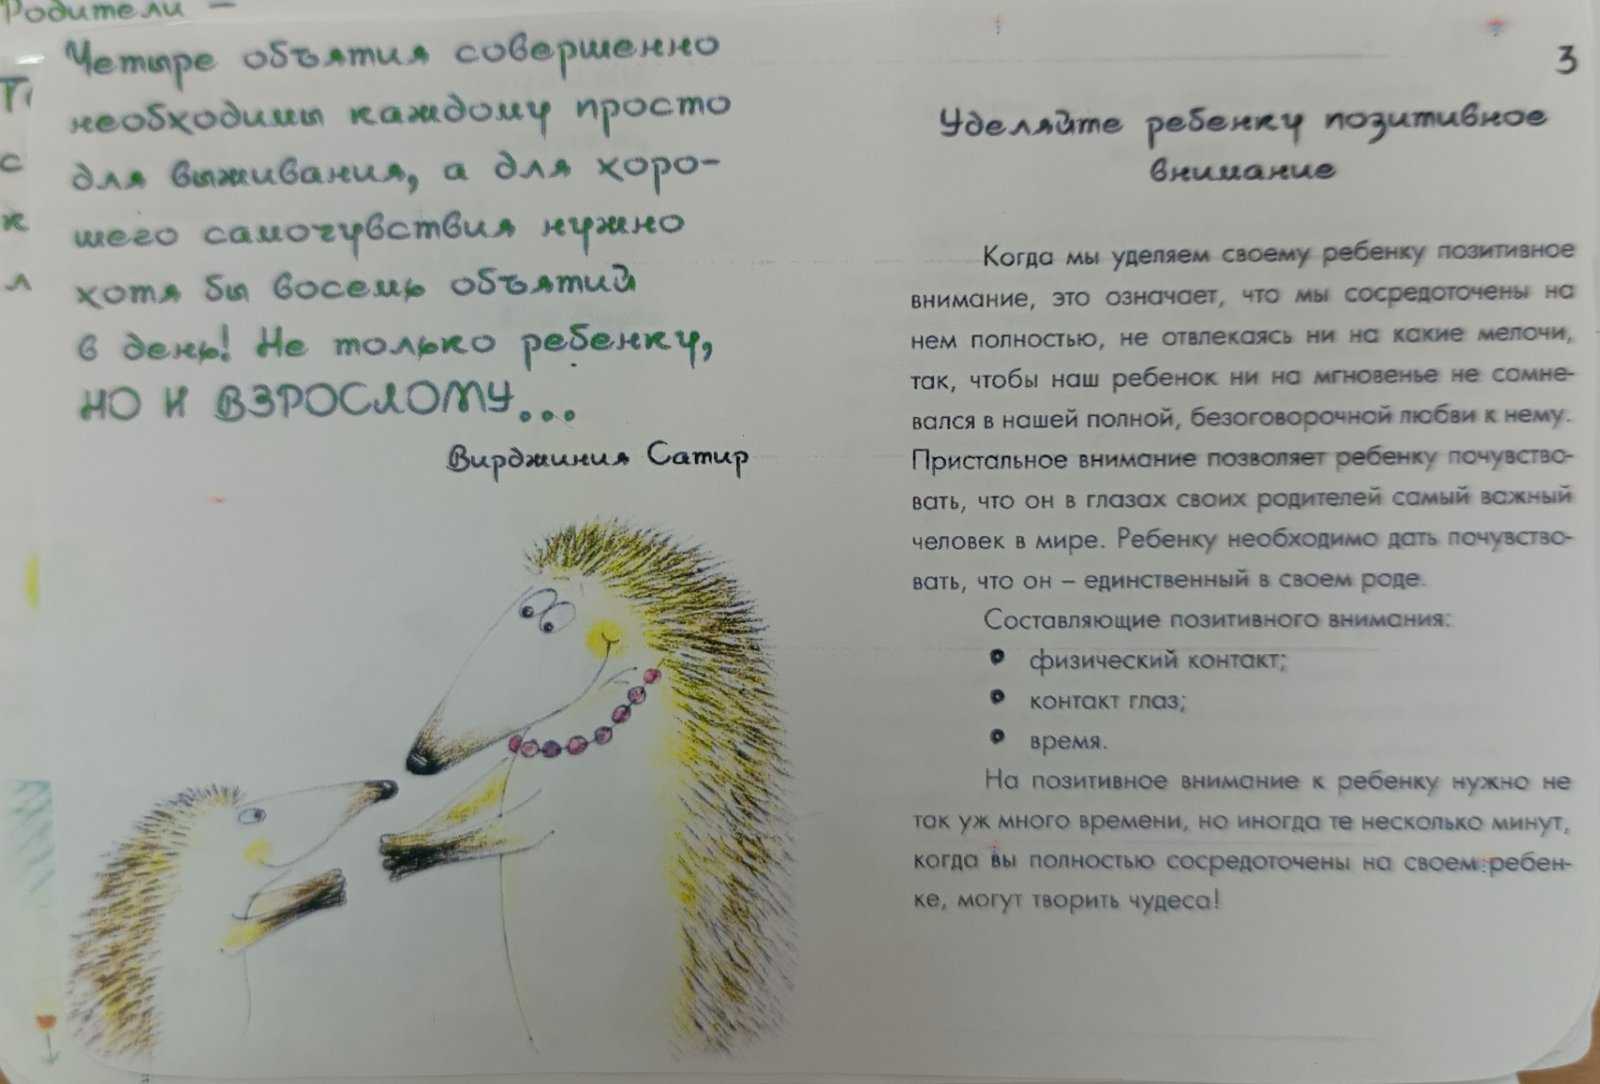 Родители –
Четыре объятия совершенно
необходимы каждому просто
для выживания, а для хоро-
шего самочувствия нужно
хотя бы восемь объятий
в день! Не только ребенку,
НО И ВЗРОСЛОМУ...
Вирджиния Сатир
3
Уделяйте ребенку позитивное
внимание
Когда мы уделяем своему ребенку позитивное
внимание, это означает, что мы сосредоточены на
нем полностью, не отвлекаясь ни на какие мелочи,
так, чтобы наш ребенок ни на мгновенье не сомне-
вался в нашей полной, безоговорочной любви к нему.
Пристальное внимание позволяет ребенку почувство-
вать, что он в глазах своих родителей самый важный
человек в мире. Ребенку необходимо дать почувство-
вать, что он – единственный в своем роде.
Составляющие позитивного внимания:
• физический контакт;
• контакт глаз;
• время.
На позитивное внимание к ребенку нужно не
так уж много времени, но иногда те несколько минут,
когда вы полностью сосредоточены на своем ребен-
ке, могут творить чудеса!